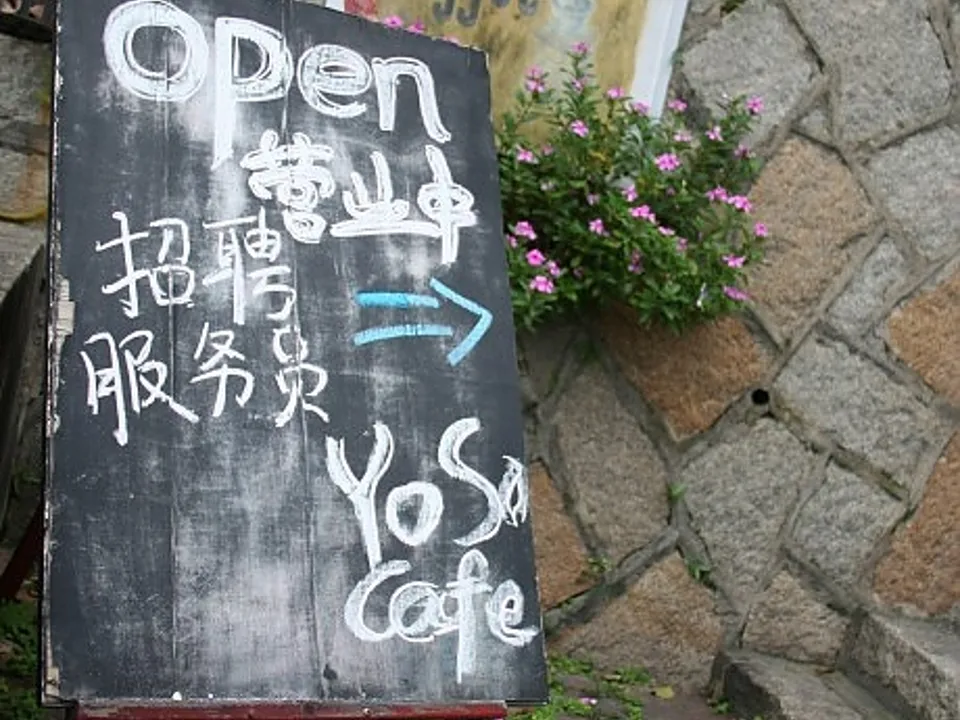 Open
营业中
招聘
服务员
YoSa
Cafe